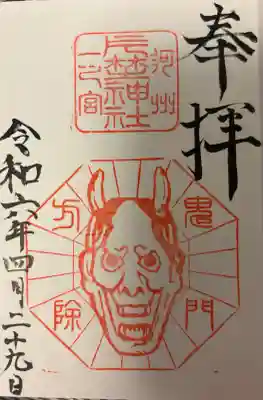 奉拝
河州
片埜神社
一之宮
鬼門
方除
令和六年四月二十九日